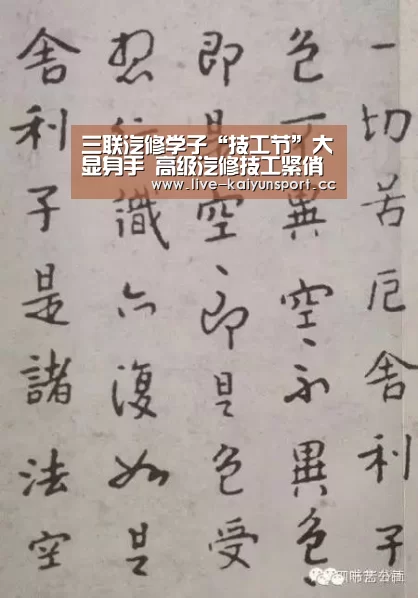 一切苦厄舍利子
色不異空、不異色
即是空、即是色受
想行識亦復如是
舍利子是諸法空
三联汽修学子“技工节”大
显身手 高级汽修技工紧俏
www.live-kaiyunsport.cc